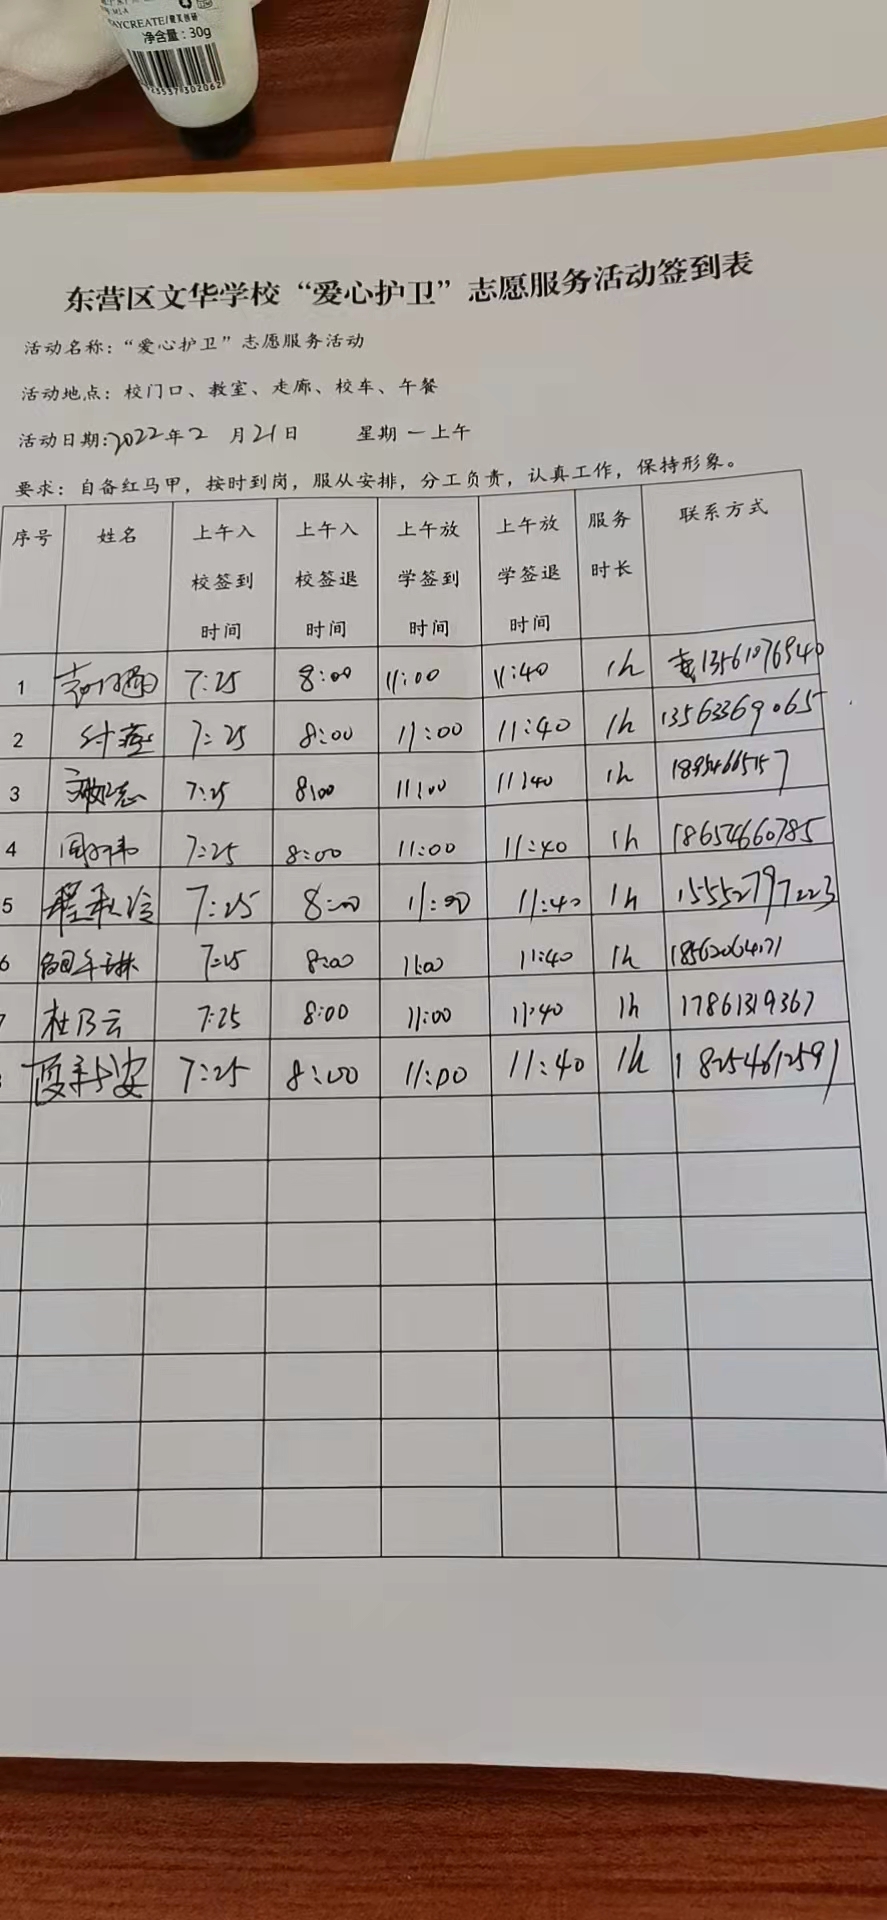 AYCREATE/
净含量：30g
23537302062
东营区文华学校“爱心护卫”志愿服务活动签到表
活动名称：“爱心护卫”志愿服务活动
活动地点：校门口、教室、走廊、校车、午餐
活动日期:2022年2 月21日 星期一上午
要求：自备红马甲，按时到岗，服从安排，分工负责，认真工作，保持形象。
序号 姓名 上午入校签到时间 上午入校签退时间 上午放学签到时间 上午放学签退时间 服务时长 联系方式
1 7:25 8:00 11:00 11:40 1h 13561076940
2 付燕 7:25 8:00 11:00 11:40 1h 13563369065
3 7:25 8:00 11:00 11:40 1h
4 7:25 8:00 11:00 11:40 1h 18654660785
5 7:25 8:00 11:00 11:40 1h 15552797223
6 7:25 8:00 11:00 11:40 1h
杜乃云 7:25 8:00 11:00 11:40 1h 17861319367
7:25 8:00 11:00 11:40 1h 18254612591